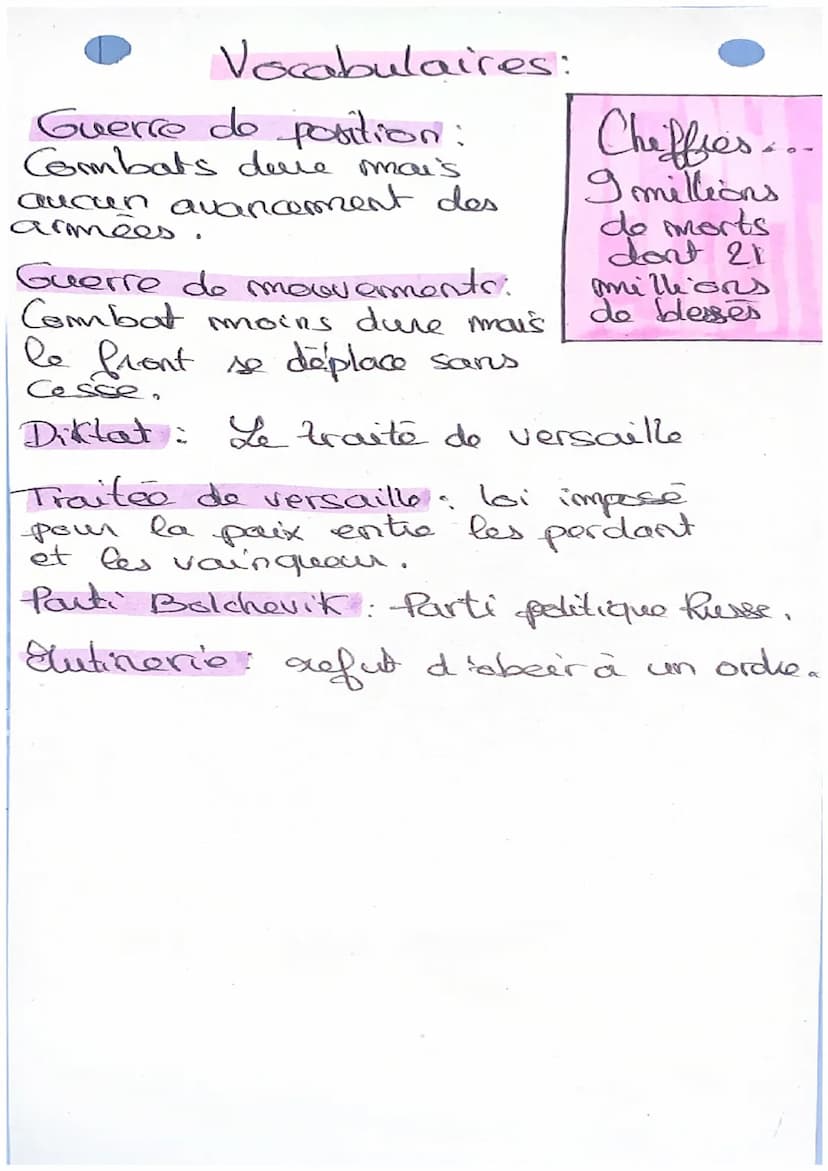 Vocabulaires:
Guerre de position:
Combats dure mais
aucun avancement des
armées.
Guerre de mouvements:
Combat moins dure mais
le front se déplace sans
cesse.
Diktat: Le traité de versaille
Traitée de versaille: loi imposé
pour la paix entre les perdant
et les vainqueur.
Parti Bolchevik: Parti politique Russe.
Mutinerie: refut d'obeir à un ordre.
Cheffres...
9 millions
de morts
dont 21
millions
de blessés